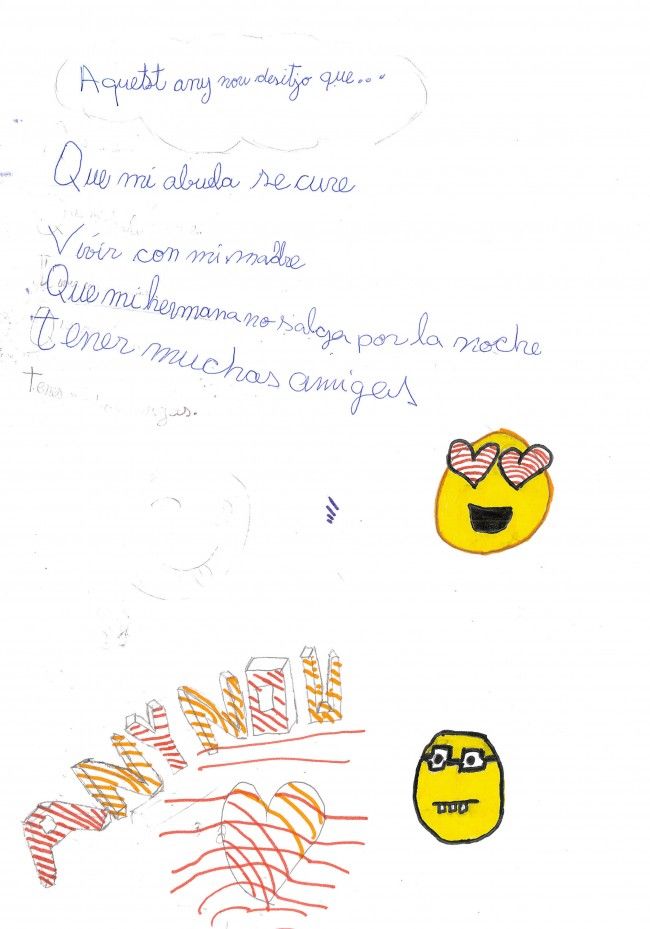 Aquetst any nou desitjo que...
Que mi abuela se cure
Vivir con mi madre
Que mi hermana no salga por la noche
Tener muchas amigas
ANY NOU